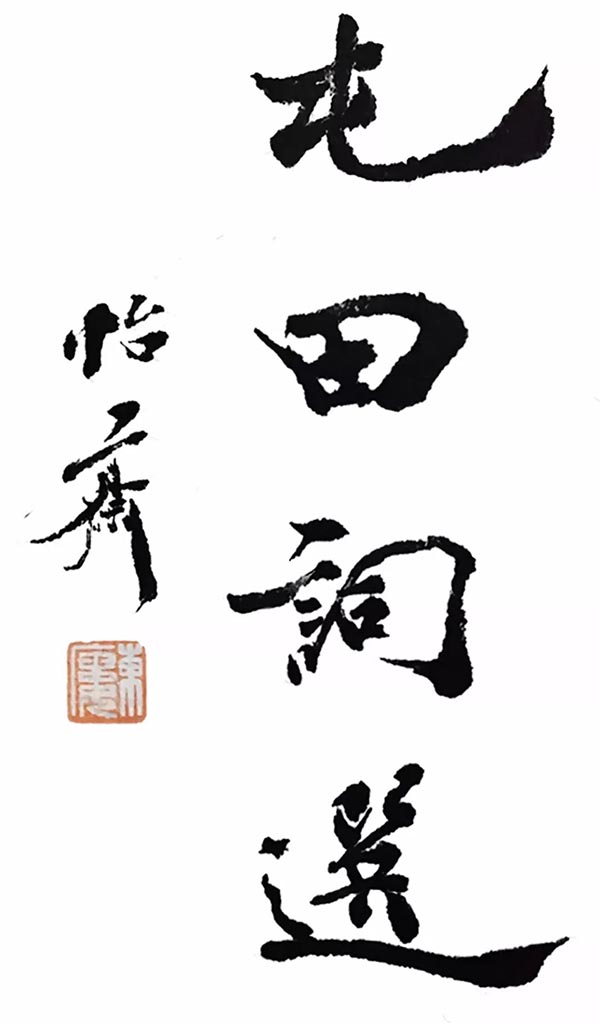 屯田詞選
怡齋